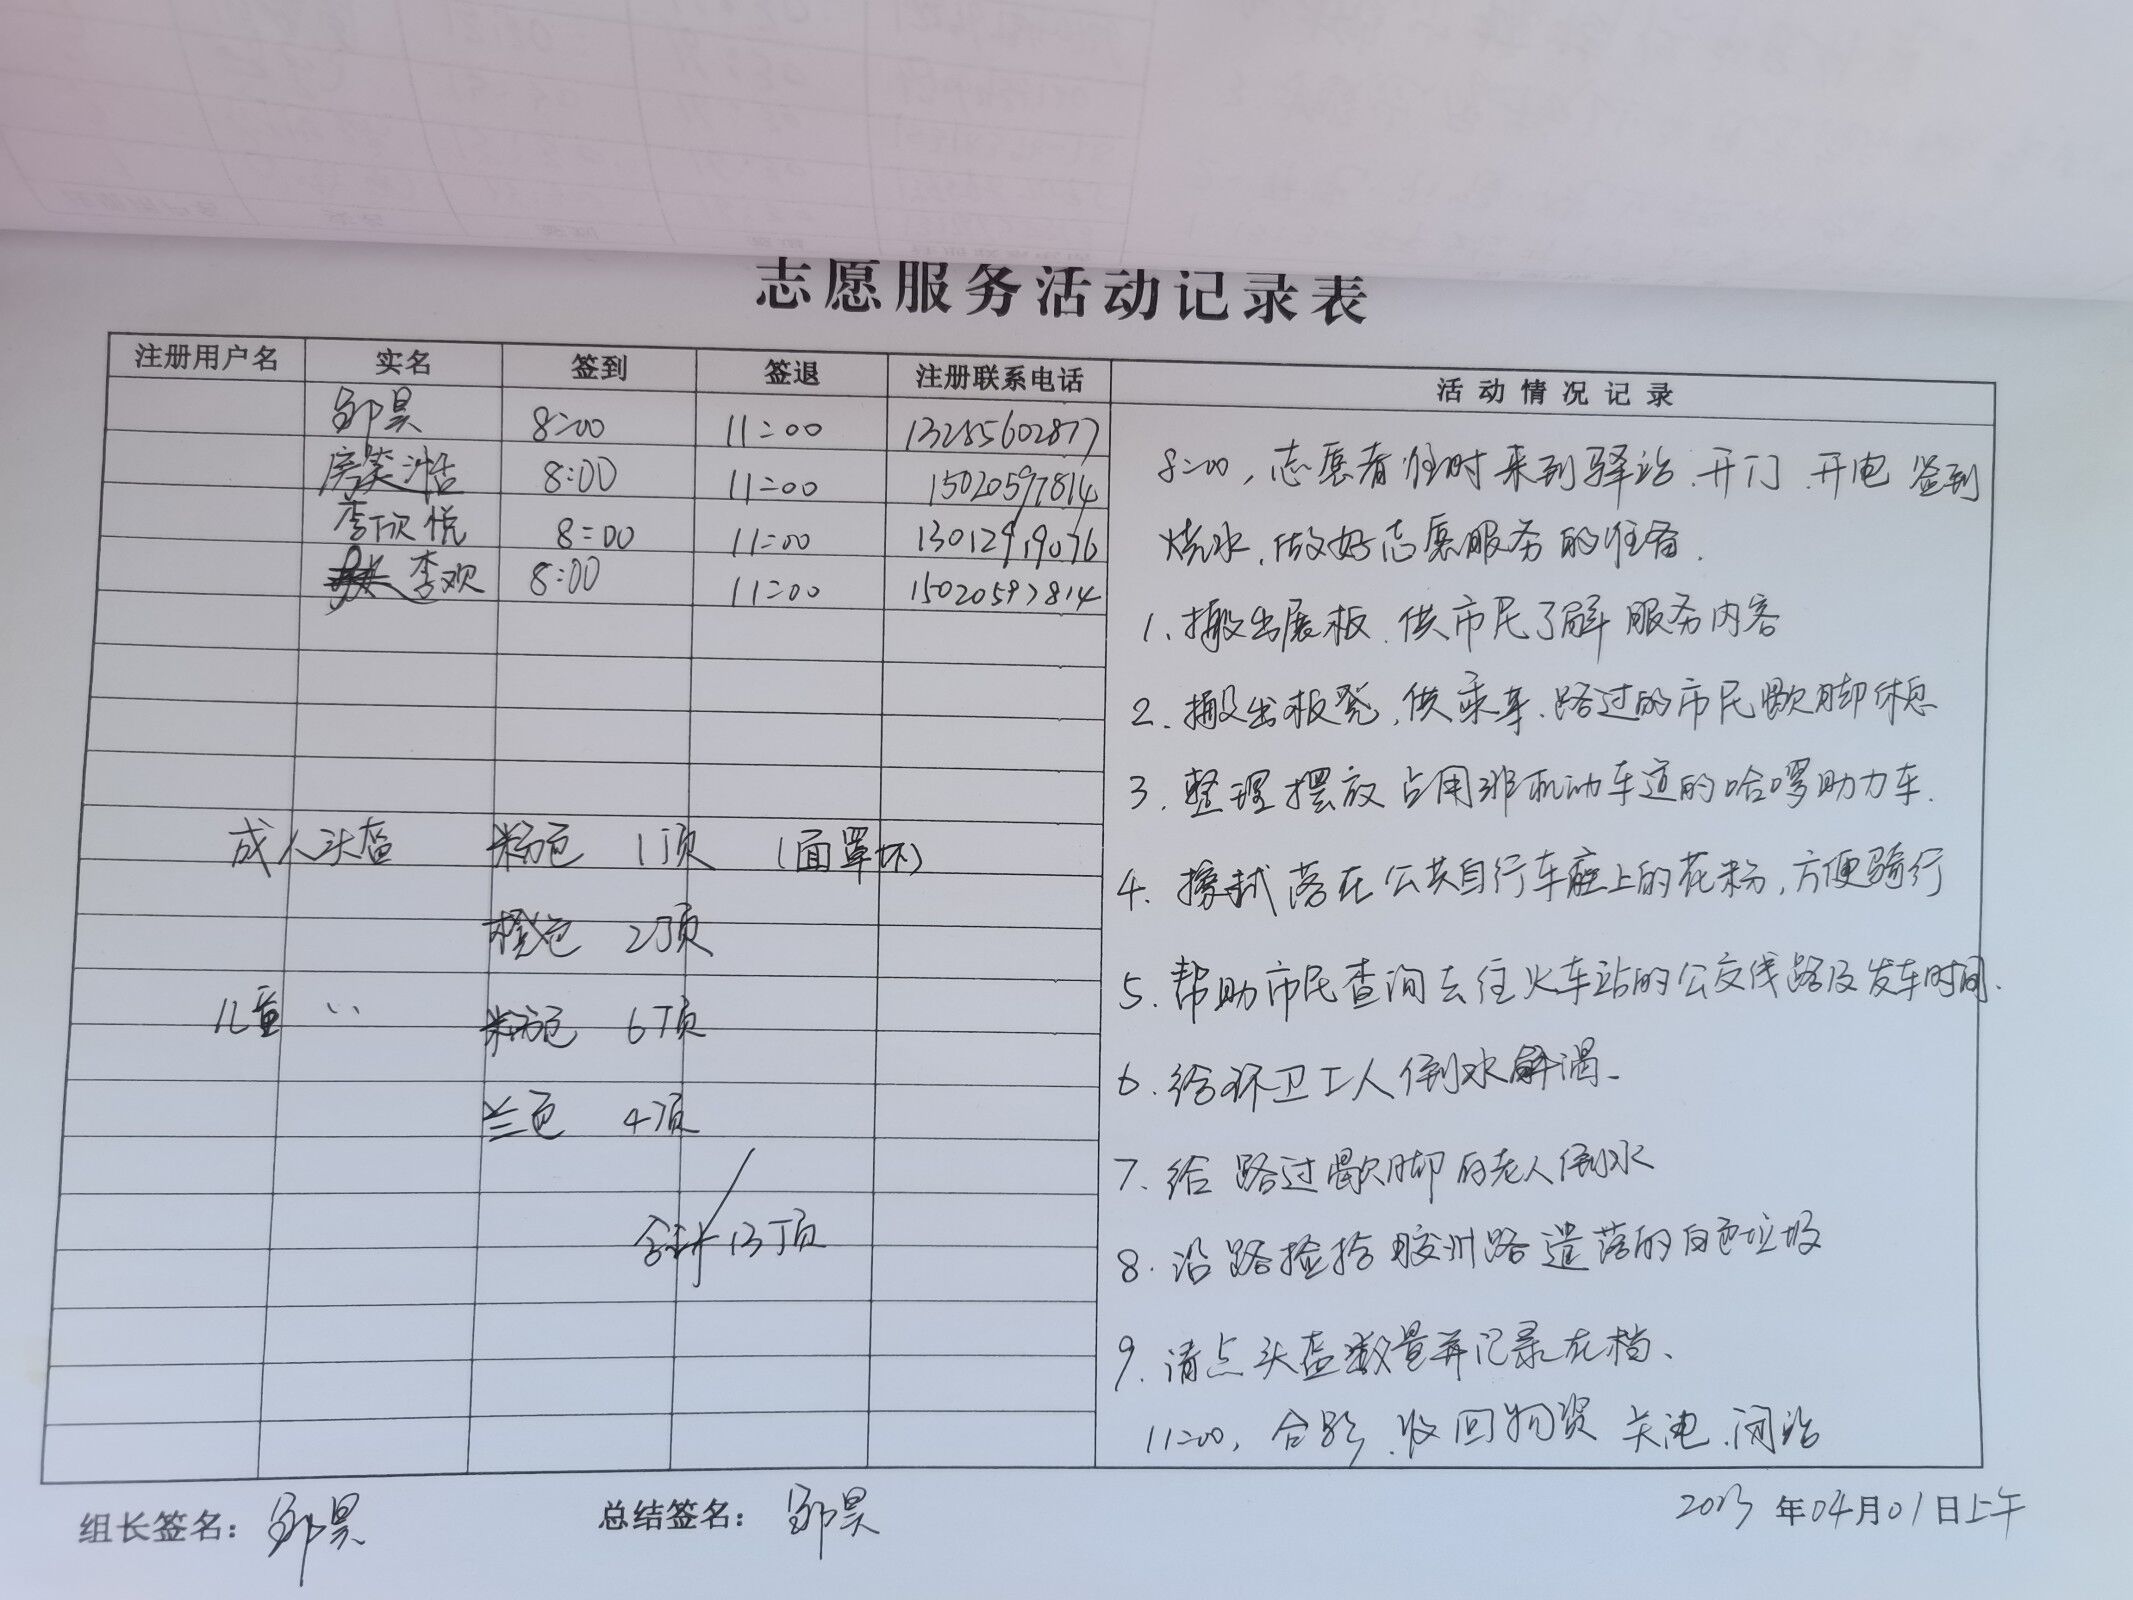 志愿服务活动记录表
注册用户名 实名 签到 签退 注册联系电话 活动情况记录
邹昊 8:00 11:00 13285602877
房笑洁 8:00 11:00 15020597814
李欣悦 8:00 11:00 13012919076
李欢 8:00 11:00 15020597814
成人头盔 粉色 1顶 (面罩坏)
橙色 2顶
儿童 〃 粉色 6顶
兰色 4顶
合计 13顶
8:00,志愿者准时来到驿站.开门.开电 签到
烧水.做好志愿服务的准备.
1、搬出展板.供市民了解服务内容
2、搬出板凳,供乘车.路过的市民歇脚休息
3.整理摆放占用非机动车道的哈啰助力车.
4.擦拭落在公共自行车座上的花粉,方便骑行
5.帮助市民查询去往火车站的公交线路及发车时间.
6.给环卫工人倒水解渴.
7.给路过歇脚的老人倒水
8.沿路捡拾胶州路遗落的白色垃圾
9.清点头盔数量并记录在档、
11:00,合影.收回物资 关电.闭站
组长签名:邹昊 总结签名:邹昊 2023年04月01日上午